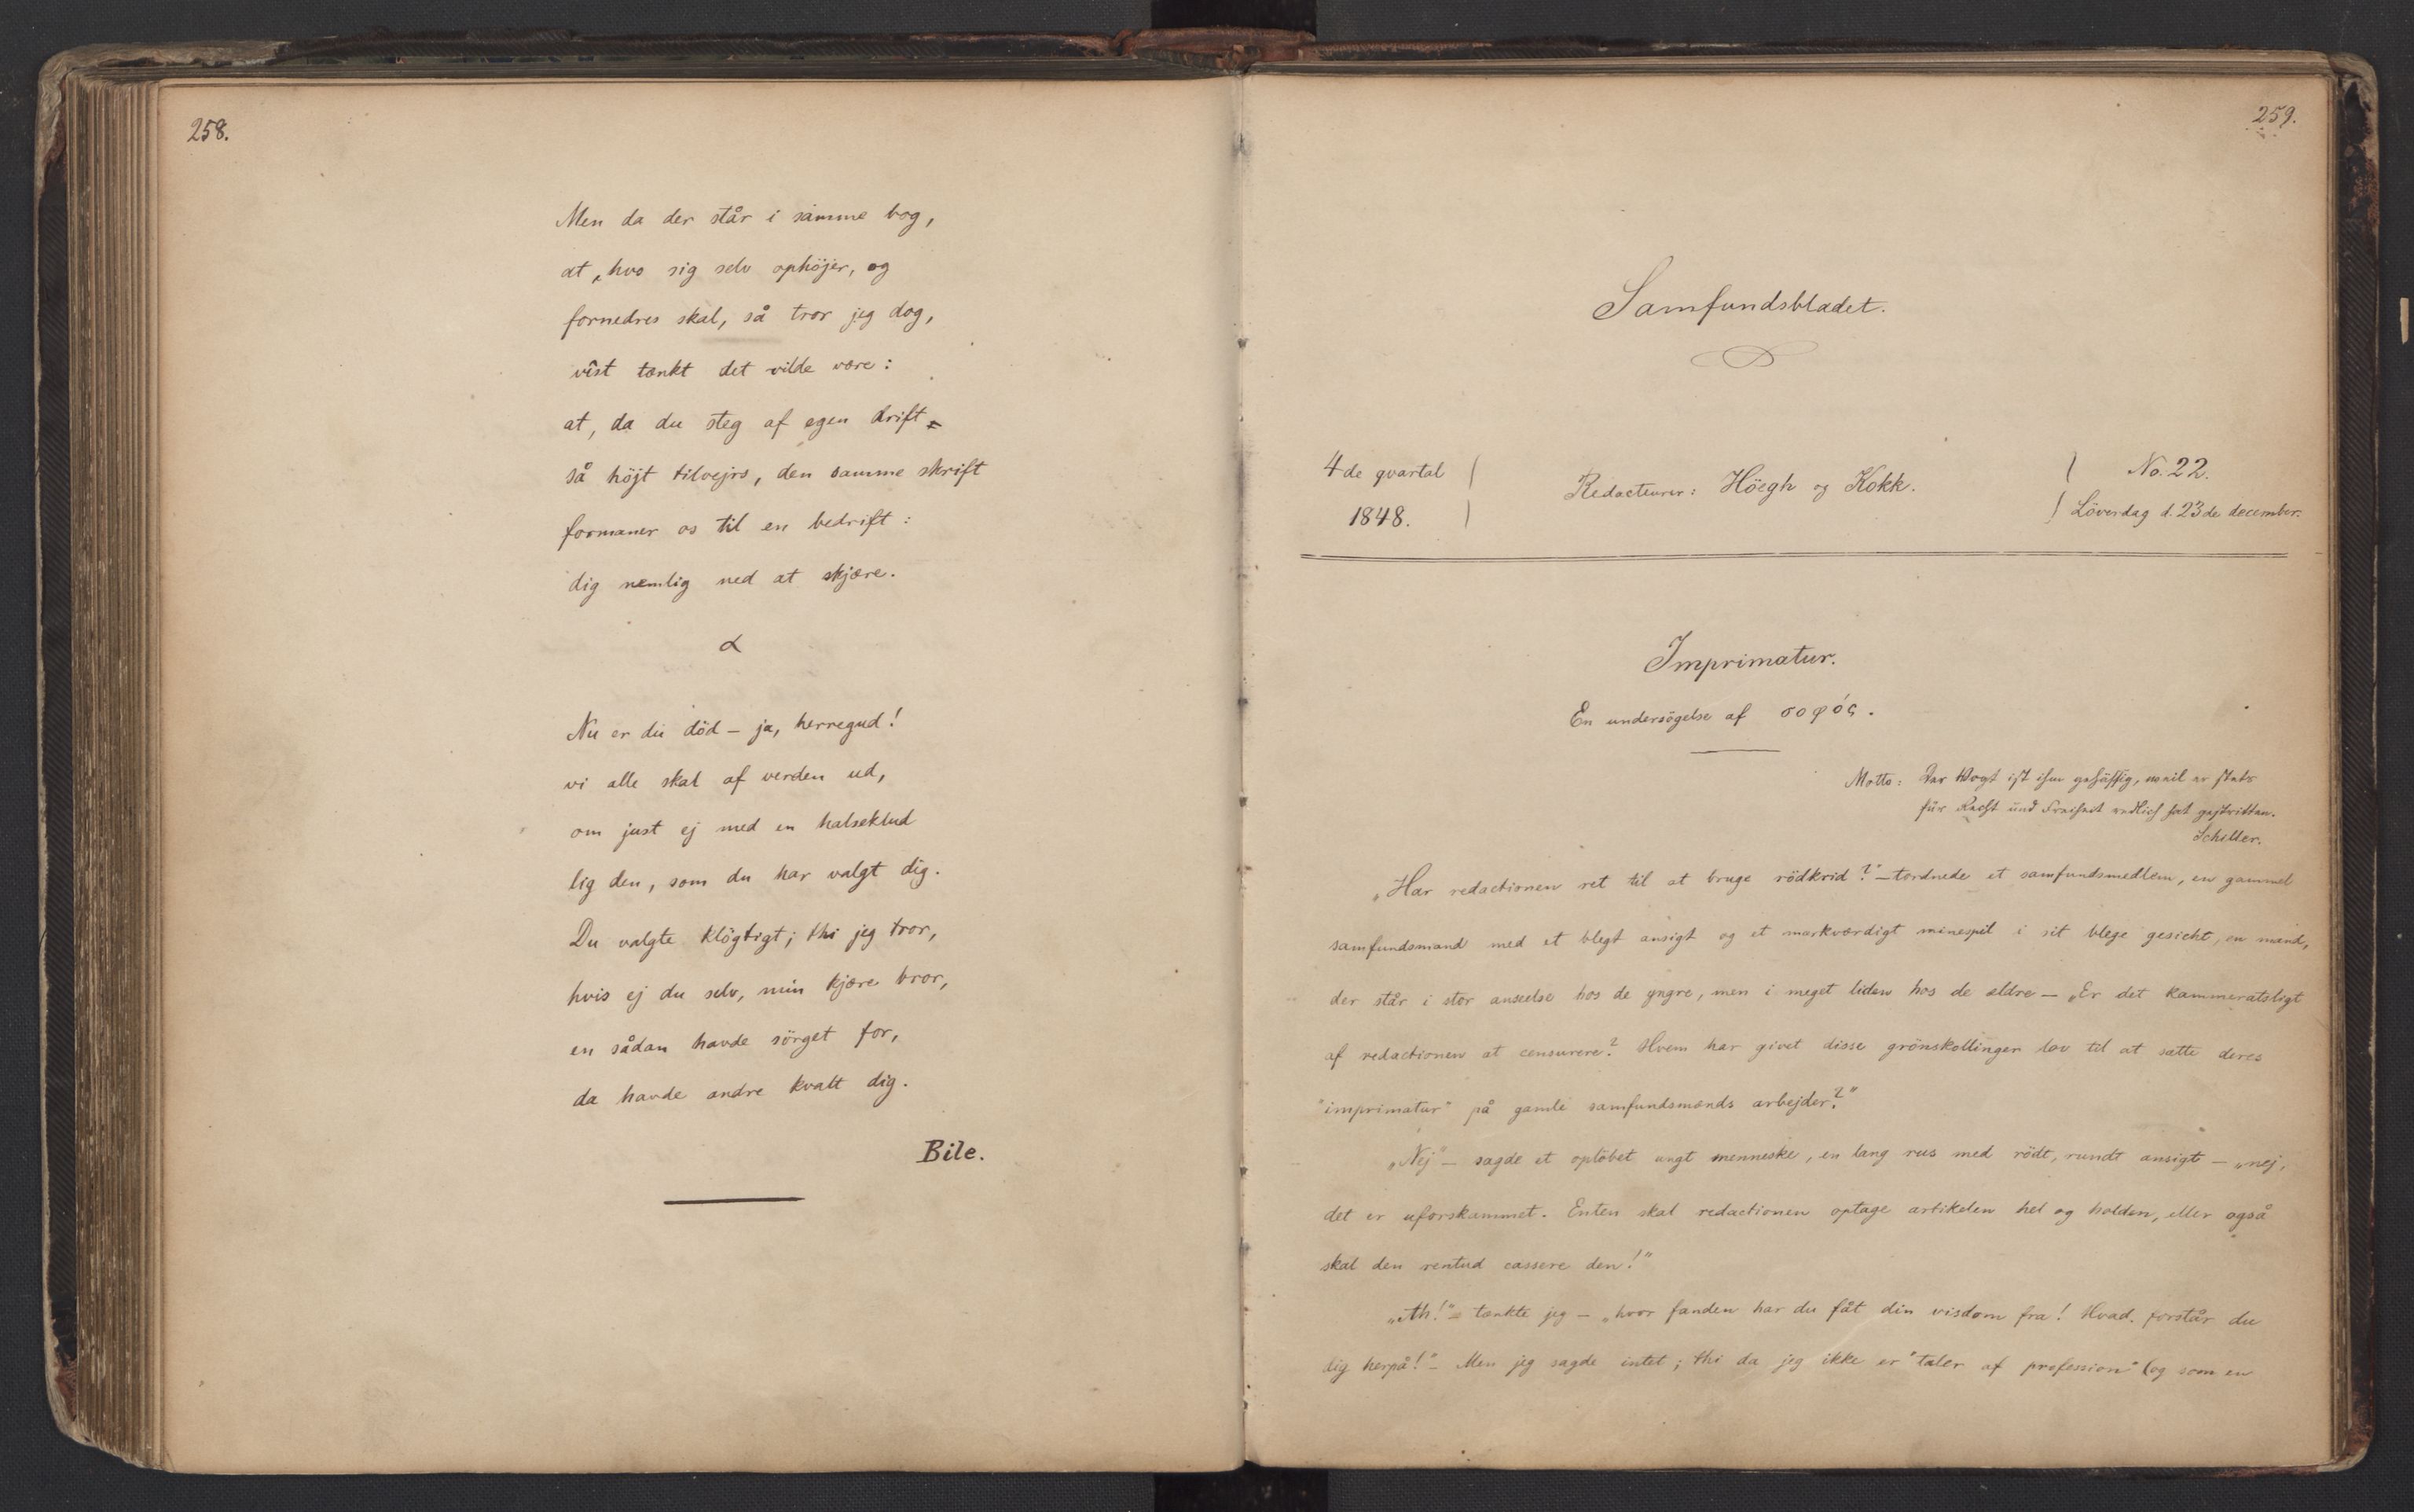 258.
Men da der står i samme bog,
at „hvo sig selv ophöjer, og
fornedres skal, så tror jeg dog,
vist tænkt det vilde være:
at, da du steg af egen drift
så höjt tilvejrs, den samme skrift
formaner os til en bedrift:
dig nemlig ned at skjære.
Nu er du död – ja, herregud!
vi alle skal af verden ud,
om just ej med en halseklud
lig den, som du har valgt dig.
Du valgte klögtigt; thi jeg tror,
hvis ej du selv, min kjære bror,
en sådan havde sörget for,
da havde andre kvalt dig.
Bile.
259.
Samfundsbladet.
4de qvartal
1848.
Redacteurer: Höegh og Kokk.
No. 22.
Löverdag d. 23de december.
Imprimatur.
En undersögelse af σοφός.
Motto: Der Vogt ist ihm gehässig, weil er stets
für Recht und Freiheit redlich hat gestritten.
Schiller.
„Har redactionen ret til at bruge rödkrid?" – tordnede et samfundsmedlem, en gammel
samfundsmand med et blegt ansigt og et mærkværdigt minespil i sit blege gesicht, en mand,
der står i stor anseelse hos de yngre, men i meget liden hos de ældre – „Er det kammeratsligt
af redactionen at censurere? Hvem har givet disse grönskollinger lov til at sætte deres
"imprimatur" på gamle samfundsmænds arbejder?"
„Nej" – sagde et opløbet ungt menneske, en lang rus med rödt, rundt ansigt – „nej,
det er uforskammet. Enten skal redactionen optage artikelen hel og holden, eller også
skal den rentud cassere den!"
„Ah!" – tænkte jeg – „hvor fanden har du fåt din visdom fra! Hvad forstår du
dig herpå!" – Men jeg sagde intet; thi da jeg ikke er "taler af profession" (og som en